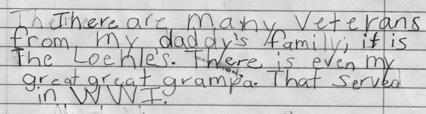 The There are many Veterans
from my daddy's family; it is
the Loehle's. There is even my
great great grampa. That served
in WWI.